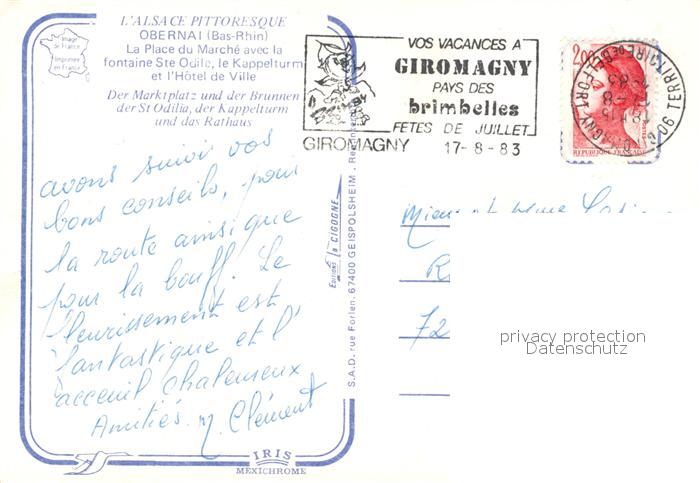 L'ALSACE PITTORESQUE
OBERNAI (Bas-Rhin)
La Place du Marché avec la
fontaine Ste Odile, le Kappelturm
et l'Hôtel de Ville
Der Marktplatz und der Brunnen
der St Odilia, der Kappelturm
und das Rathaus
Image de France
Imprimée en France
avons suivi vos
bons conseils, pour
la route ainsi que
pour la bouff. Le
fleurissement est
fantastique et l'
acceuil chaleureux
Amitiés. M. Clément
IRIS
MEXICHROME
Editions la CIGOGNE
S.A.D. rue Forlen. 67400 GEISPOLSHEIM.
VOS VACANCES A
GIROMAGNY
PAYS DES
brimbelles
FETES DE JUILLET
GIROMAGNY 17-8-83
2,00
REPUBLIQUE FRANCAISE
90 TERRITOIRE DE BELFORT
GIROMAGNY
18H15
17-8
83
R
72
privacy protection
Datenschutz